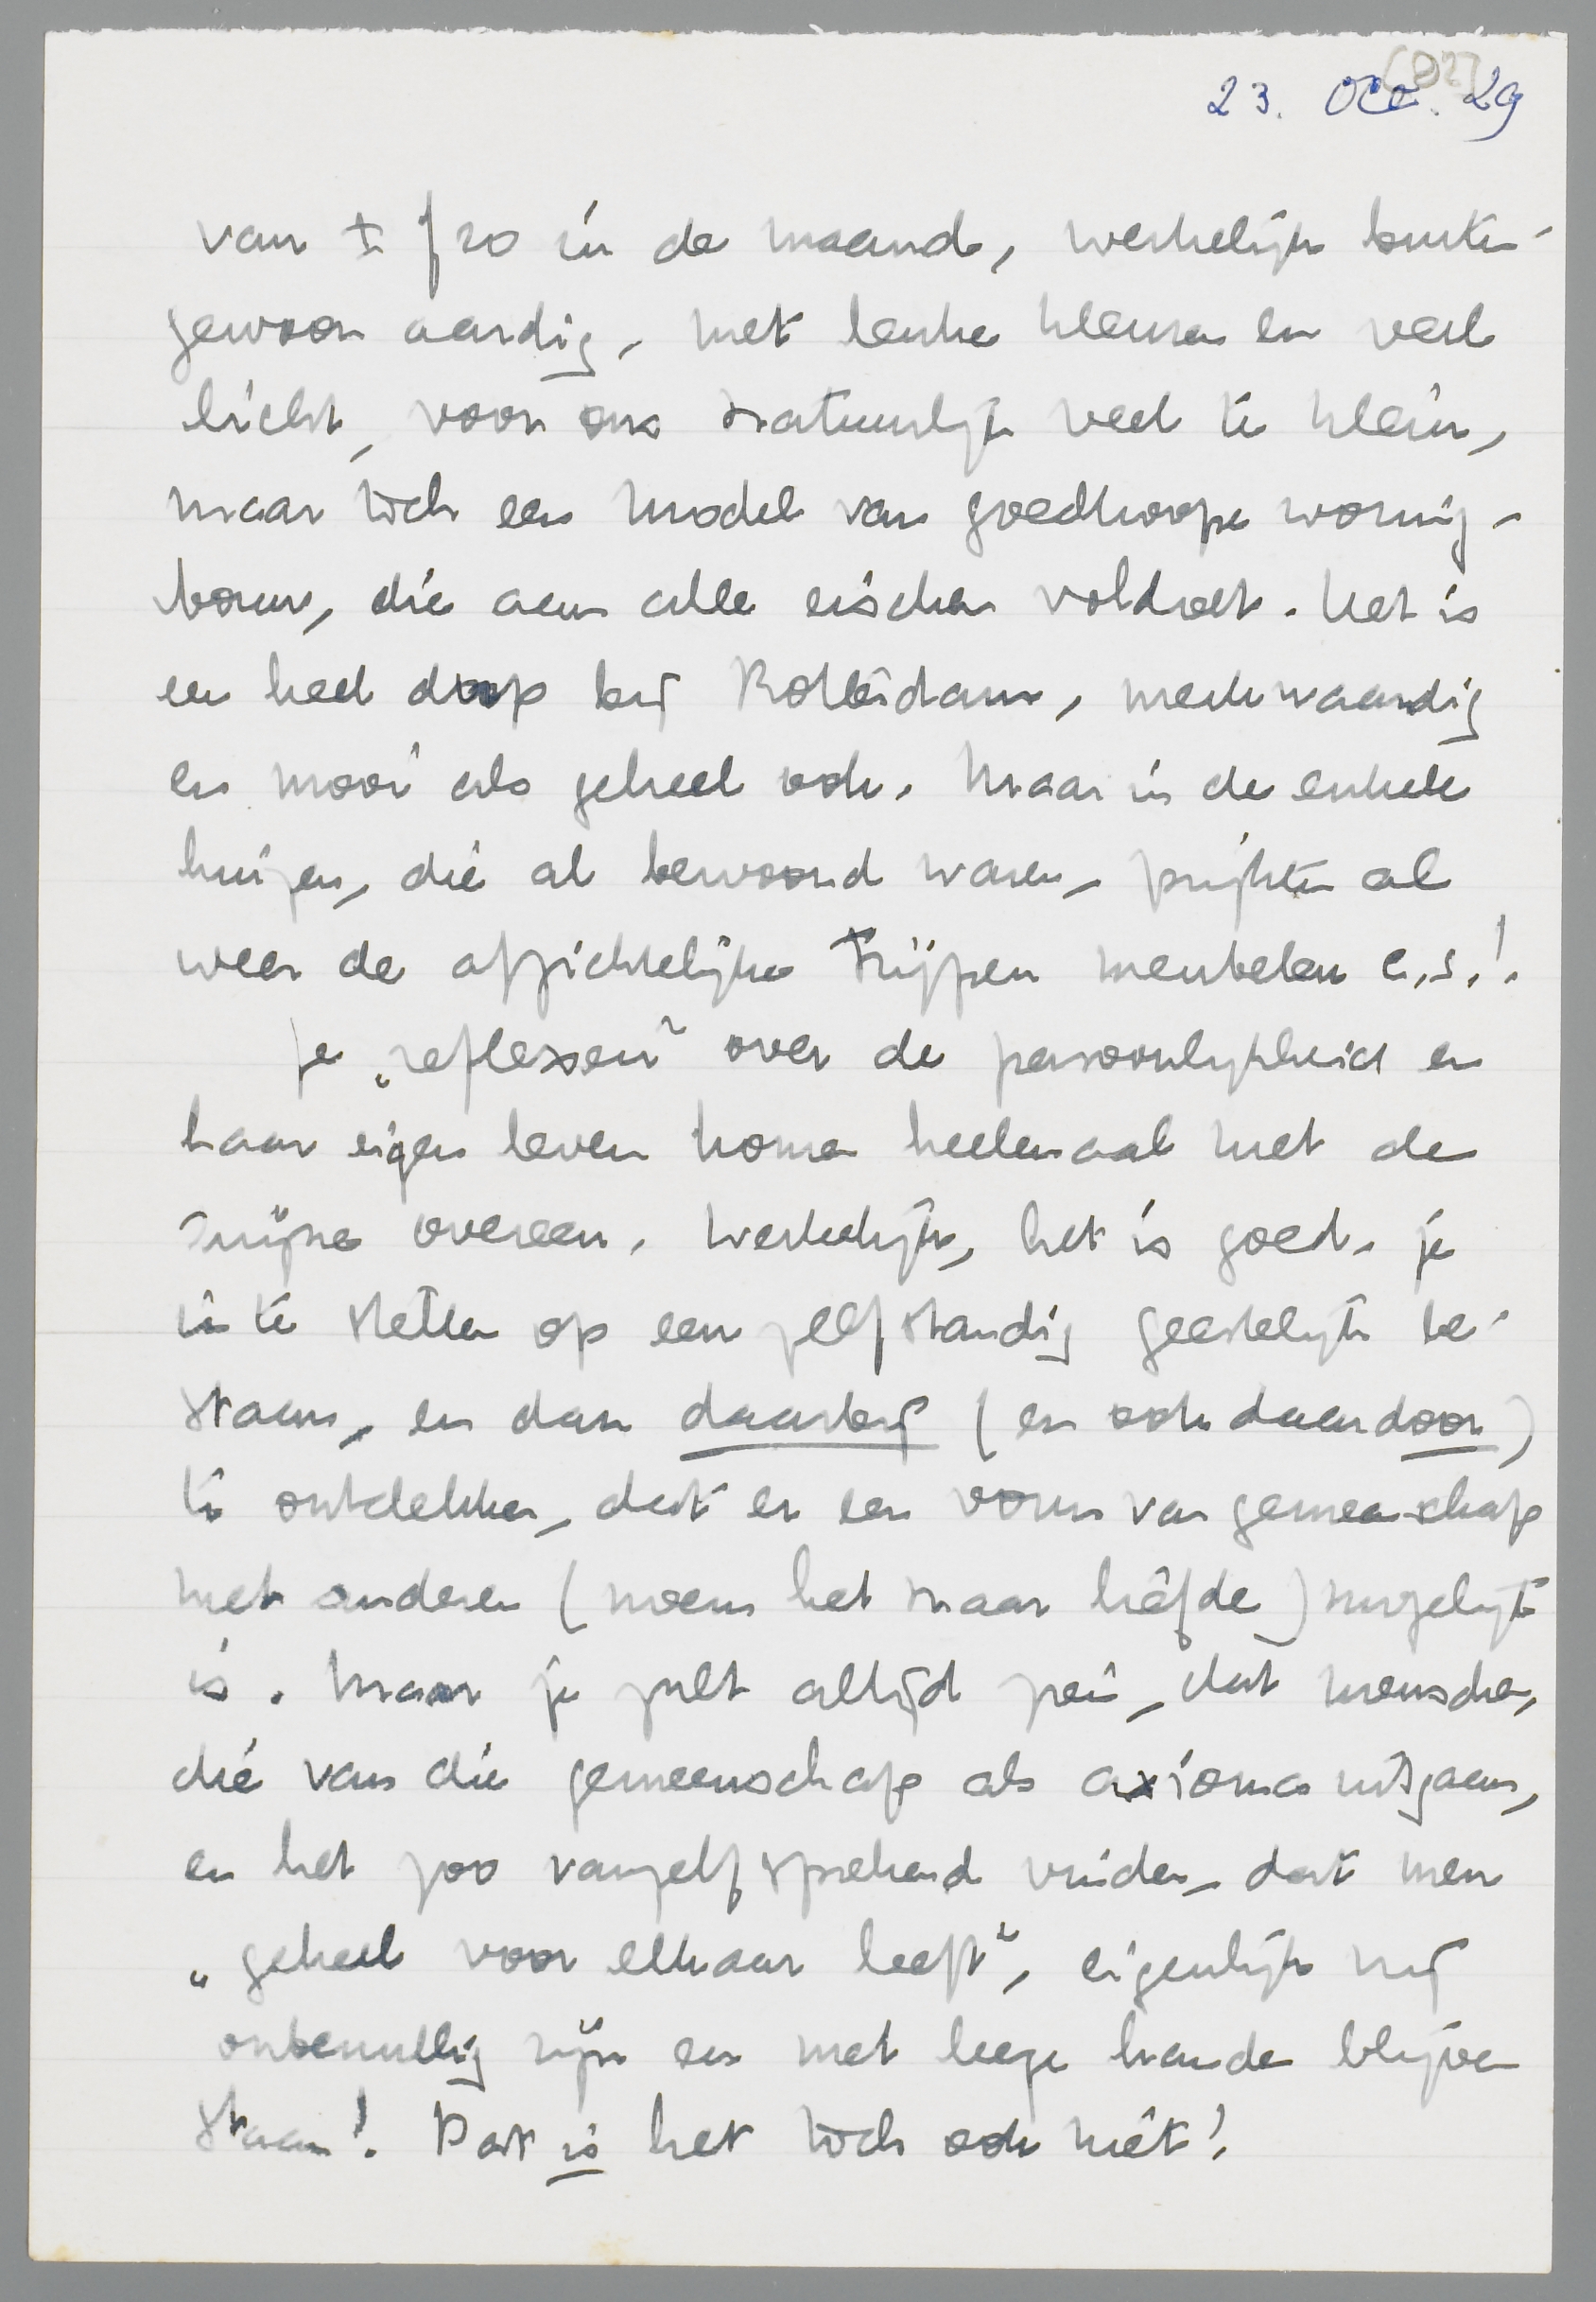 23. Oct. 29
van ± f 20 in de maand, werkelijk buiten-
gewoon aardig, met leuke kleuren en veel
licht, voor ons natuurlijk veel te klein,
maar toch een model van goedkoope woning-
bouw, die aan alle eischen voldoet. Het is
een heel dorp bij Rotterdam, merkwaardig
en mooi als geheel ook. Maar in de enkele
huizen, die al bewoond waren, prijkten al
weer de afzichtelijke trijpen meubelen e.s.!.
Je „reflexen" over de persoonlijkheid en
haar eigen leven komen heelemaal met de
mijne overeen. Werkelijk, het is goed, je
in te stellen op een zelfstandig geestelijk be-
staan, en dan daarbij (en ook daardoor)
te ontdekken, dat er een vorm van gemeenschap
met anderen (noem het maar liefde) mogelijk
is. Maar je zult altijd zien, dat menschen,
die van die gemeenschap als axioma uitgaan,
en het zoo vanzelfsprekend vinden, dat men
„geheel voor elkaar leeft", eigenlijk vrij
onbenullig zijn en met leege handen blijven
staan! Dat is het toch ook niet!